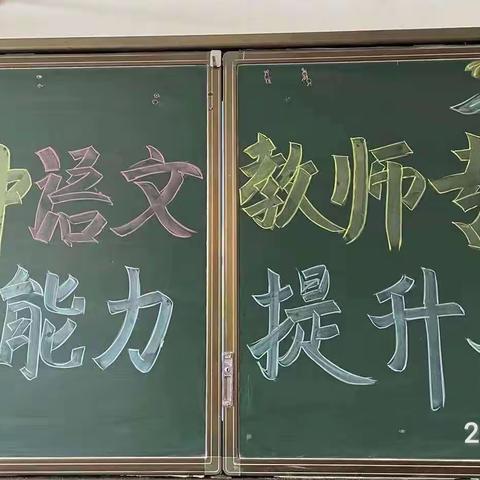 语文教师
能力提升
2